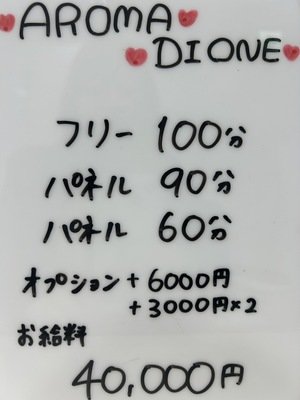 AROMA
DIONE
フリー 100分
パネル 90分
パネル 60分
オプション+6000円
+3000円×2
お給料
40,000円